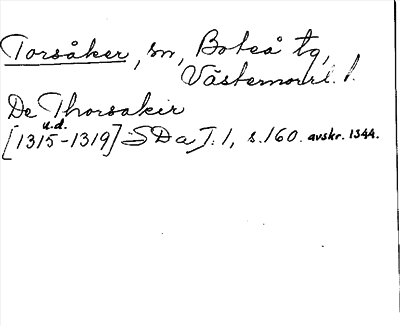 Torsåker, sn, Boteå tg,
Västernorrl. l.
De Thorsakir
u.d.
[1315-1319] SDa I. 1, s. 160. avskr. 1344.